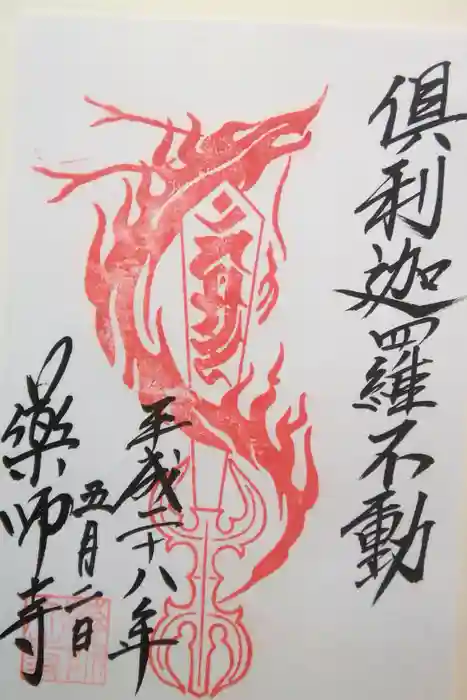 俱利迦羅不動
平成二十八年
五月二日
薬師寺